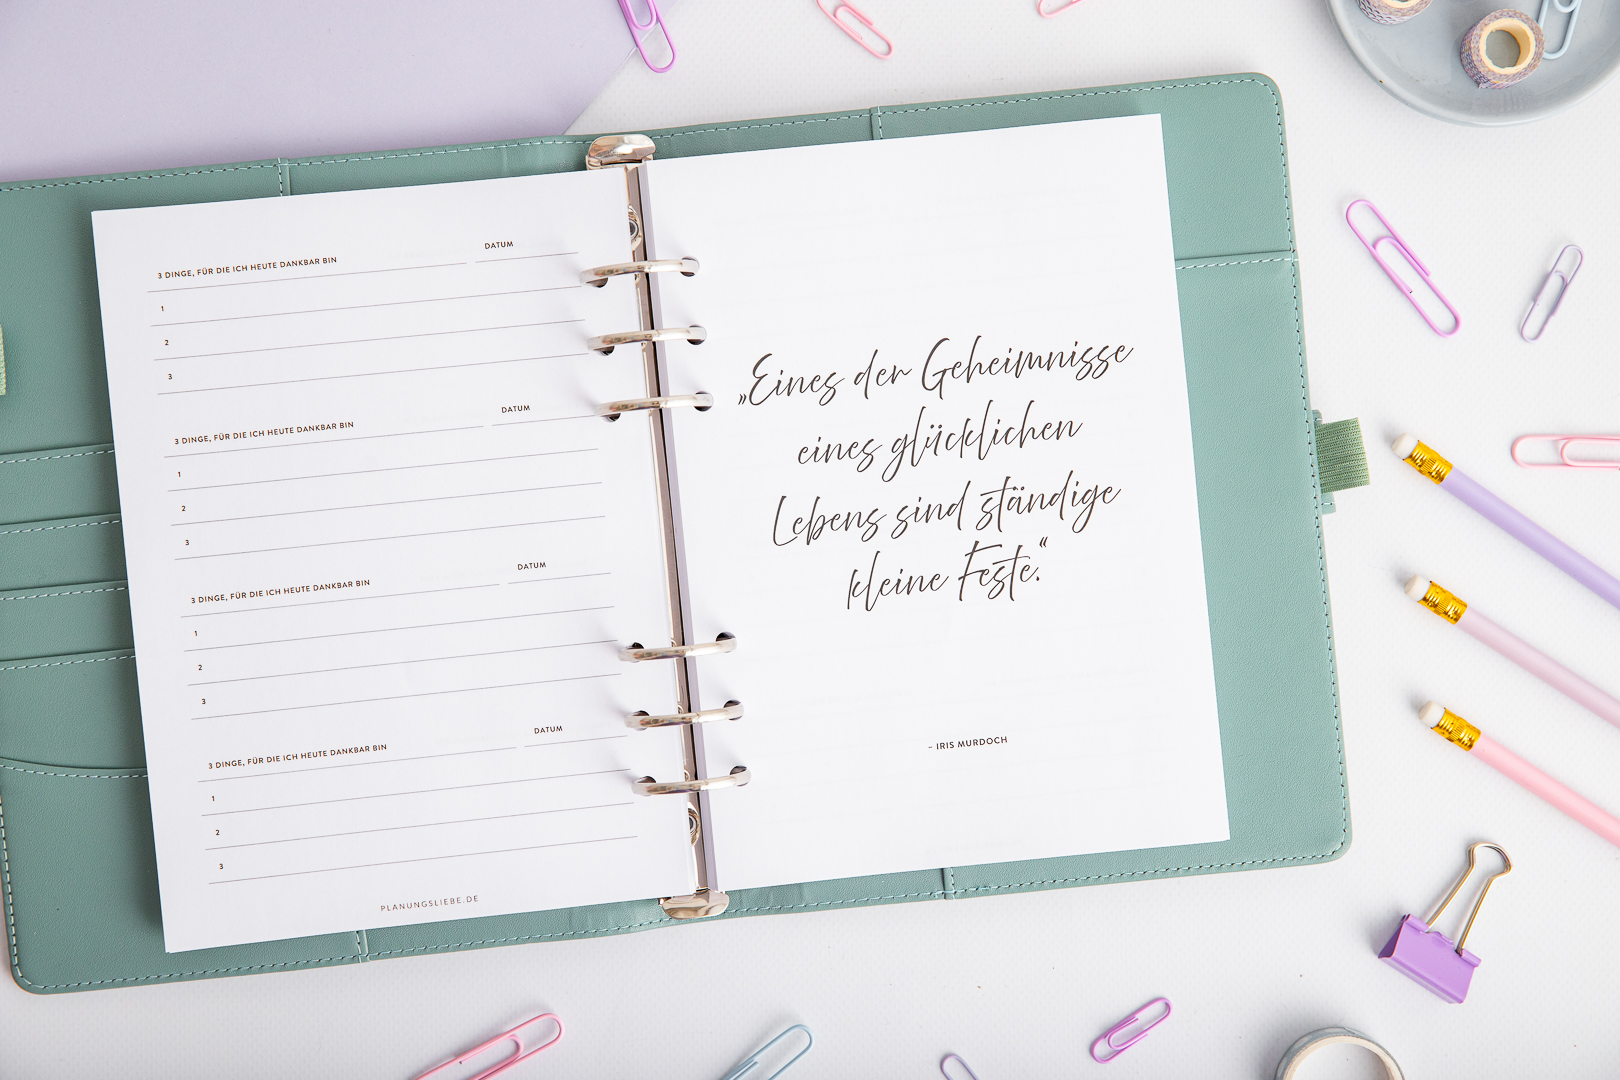 3 DINGE, FÜR DIE ICH HEUTE DANKBAR BIN DATUM
1
2
3
3 DINGE, FÜR DIE ICH HEUTE DANKBAR BIN DATUM
1
2
3
3 DINGE, FÜR DIE ICH HEUTE DANKBAR BIN DATUM
1
2
3
3 DINGE, FÜR DIE ICH HEUTE DANKBAR BIN DATUM
1
2
3
PLANUNGSLIEBE.DE
„Eines der Geheimnisse
eines glücklichen
Lebens sind ständige
kleine Feste.“
– IRIS MURDOCH